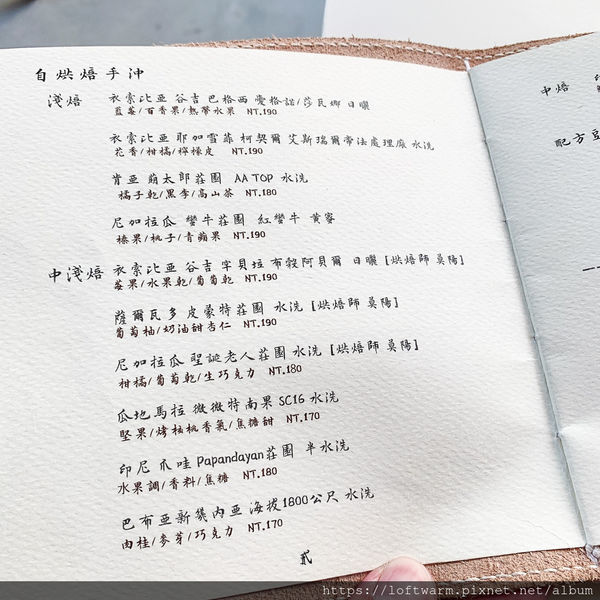 自烘焙手沖
淺焙
衣索比亞 谷吉 巴格西 愛格詮/莎瓦娜 日曬
藍莓/百香果/熱帶水果 NT.190
衣索比亞 耶加雪菲 柯契爾 艾斯瑞爾帝法處理廠 水洗
花香/柑橘/檸檬皮 NT.190
肯亞 莊園 AA TOP 水洗
橘子乾/黑李/高山茶 NT.180
尼加拉瓜 蠻牛莊園 紅蠻牛 黃蜜
榛果/桃子/青蘋果 NT.190
中淺焙
衣索比亞 谷吉 罕貝拉 布穀阿貝爾 日曬 [烘焙師 莫陽]
莓果/水果乾/葡萄乾 NT.190
薩爾瓦多 皮蒙特莊園 水洗 [烘焙師 莫陽]
葡萄柚/奶油甜杏仁 NT.190
尼加拉瓜 聖誕老人莊園 水洗 [烘焙師 莫陽]
柑橘/葡萄乾/生巧克力 NT.180
瓜地馬拉 微微特南果 SC16 水洗
堅果/烤核桃香氣/焦糖甜 NT.170
印尼 爪哇 Papandayan莊園 半水洗
水果調/香料/焦糖 NT.180
巴布亞新幾內亞 海拔1800公尺 水洗
肉桂/麥芽/巧克力 NT.170
貳
中焙
配方豆
https://loftwarm.pixnet.net/album